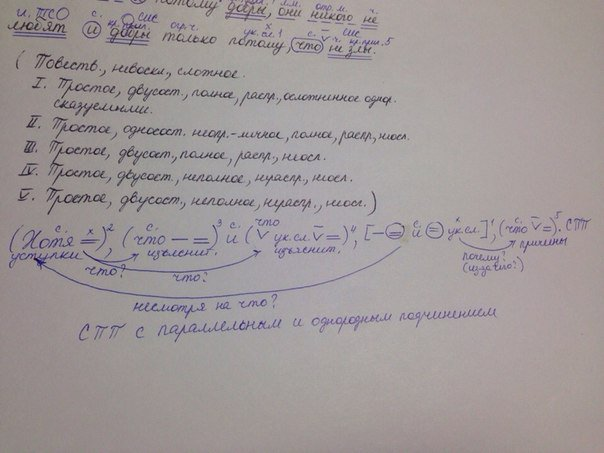 потому добры, они никого не
и. ТСО с. СИС огр. ч. ук. сл. 1 с. СИС ч. кр. прил. 5
любят и добры только потому, что не злы.
(Повеств., невоскл., сложное.
I. Простое, двусост., полное, распр., осложненное однор.
сказуемыми.
II. Простое, односост. неопр.-личное, полное, распр., неосл.
III. Простое, двусост., полное, распр., неосл.
IV. Простое, двусост., неполное, нераспр., неосл.
V. Простое, двусост., неполное, нераспр., неосл.)
(Хотя =)², (что – =)³ и (что ук. сл. =)⁴, [– = и = ук. сл.]¹, (что =)⁵. СПП
уступки изъяснит. изъяснит. причины
что? что? почему?
(из-за чего?)
несмотря на что?
СПП с параллельным и однородным подчинением